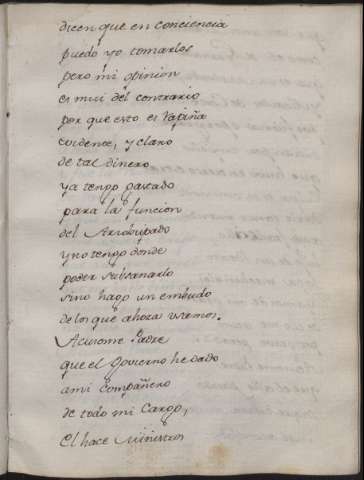 dicen que en conciencia
puedo yo tomarlos
pero mi opinion
es mui del contrario
por que esto es Rapiña
evidence, y claro
de tal dinero
ya tengo pactado
para la funcion
del Arzobispado
y no tengo donde
poder subsanarlo
sino hago un embudo
de los que ahora usamos.
Acusome Padre
que el Govierno he dado
a mi Compañero
de todo mi Cargo,
El hace Ministros